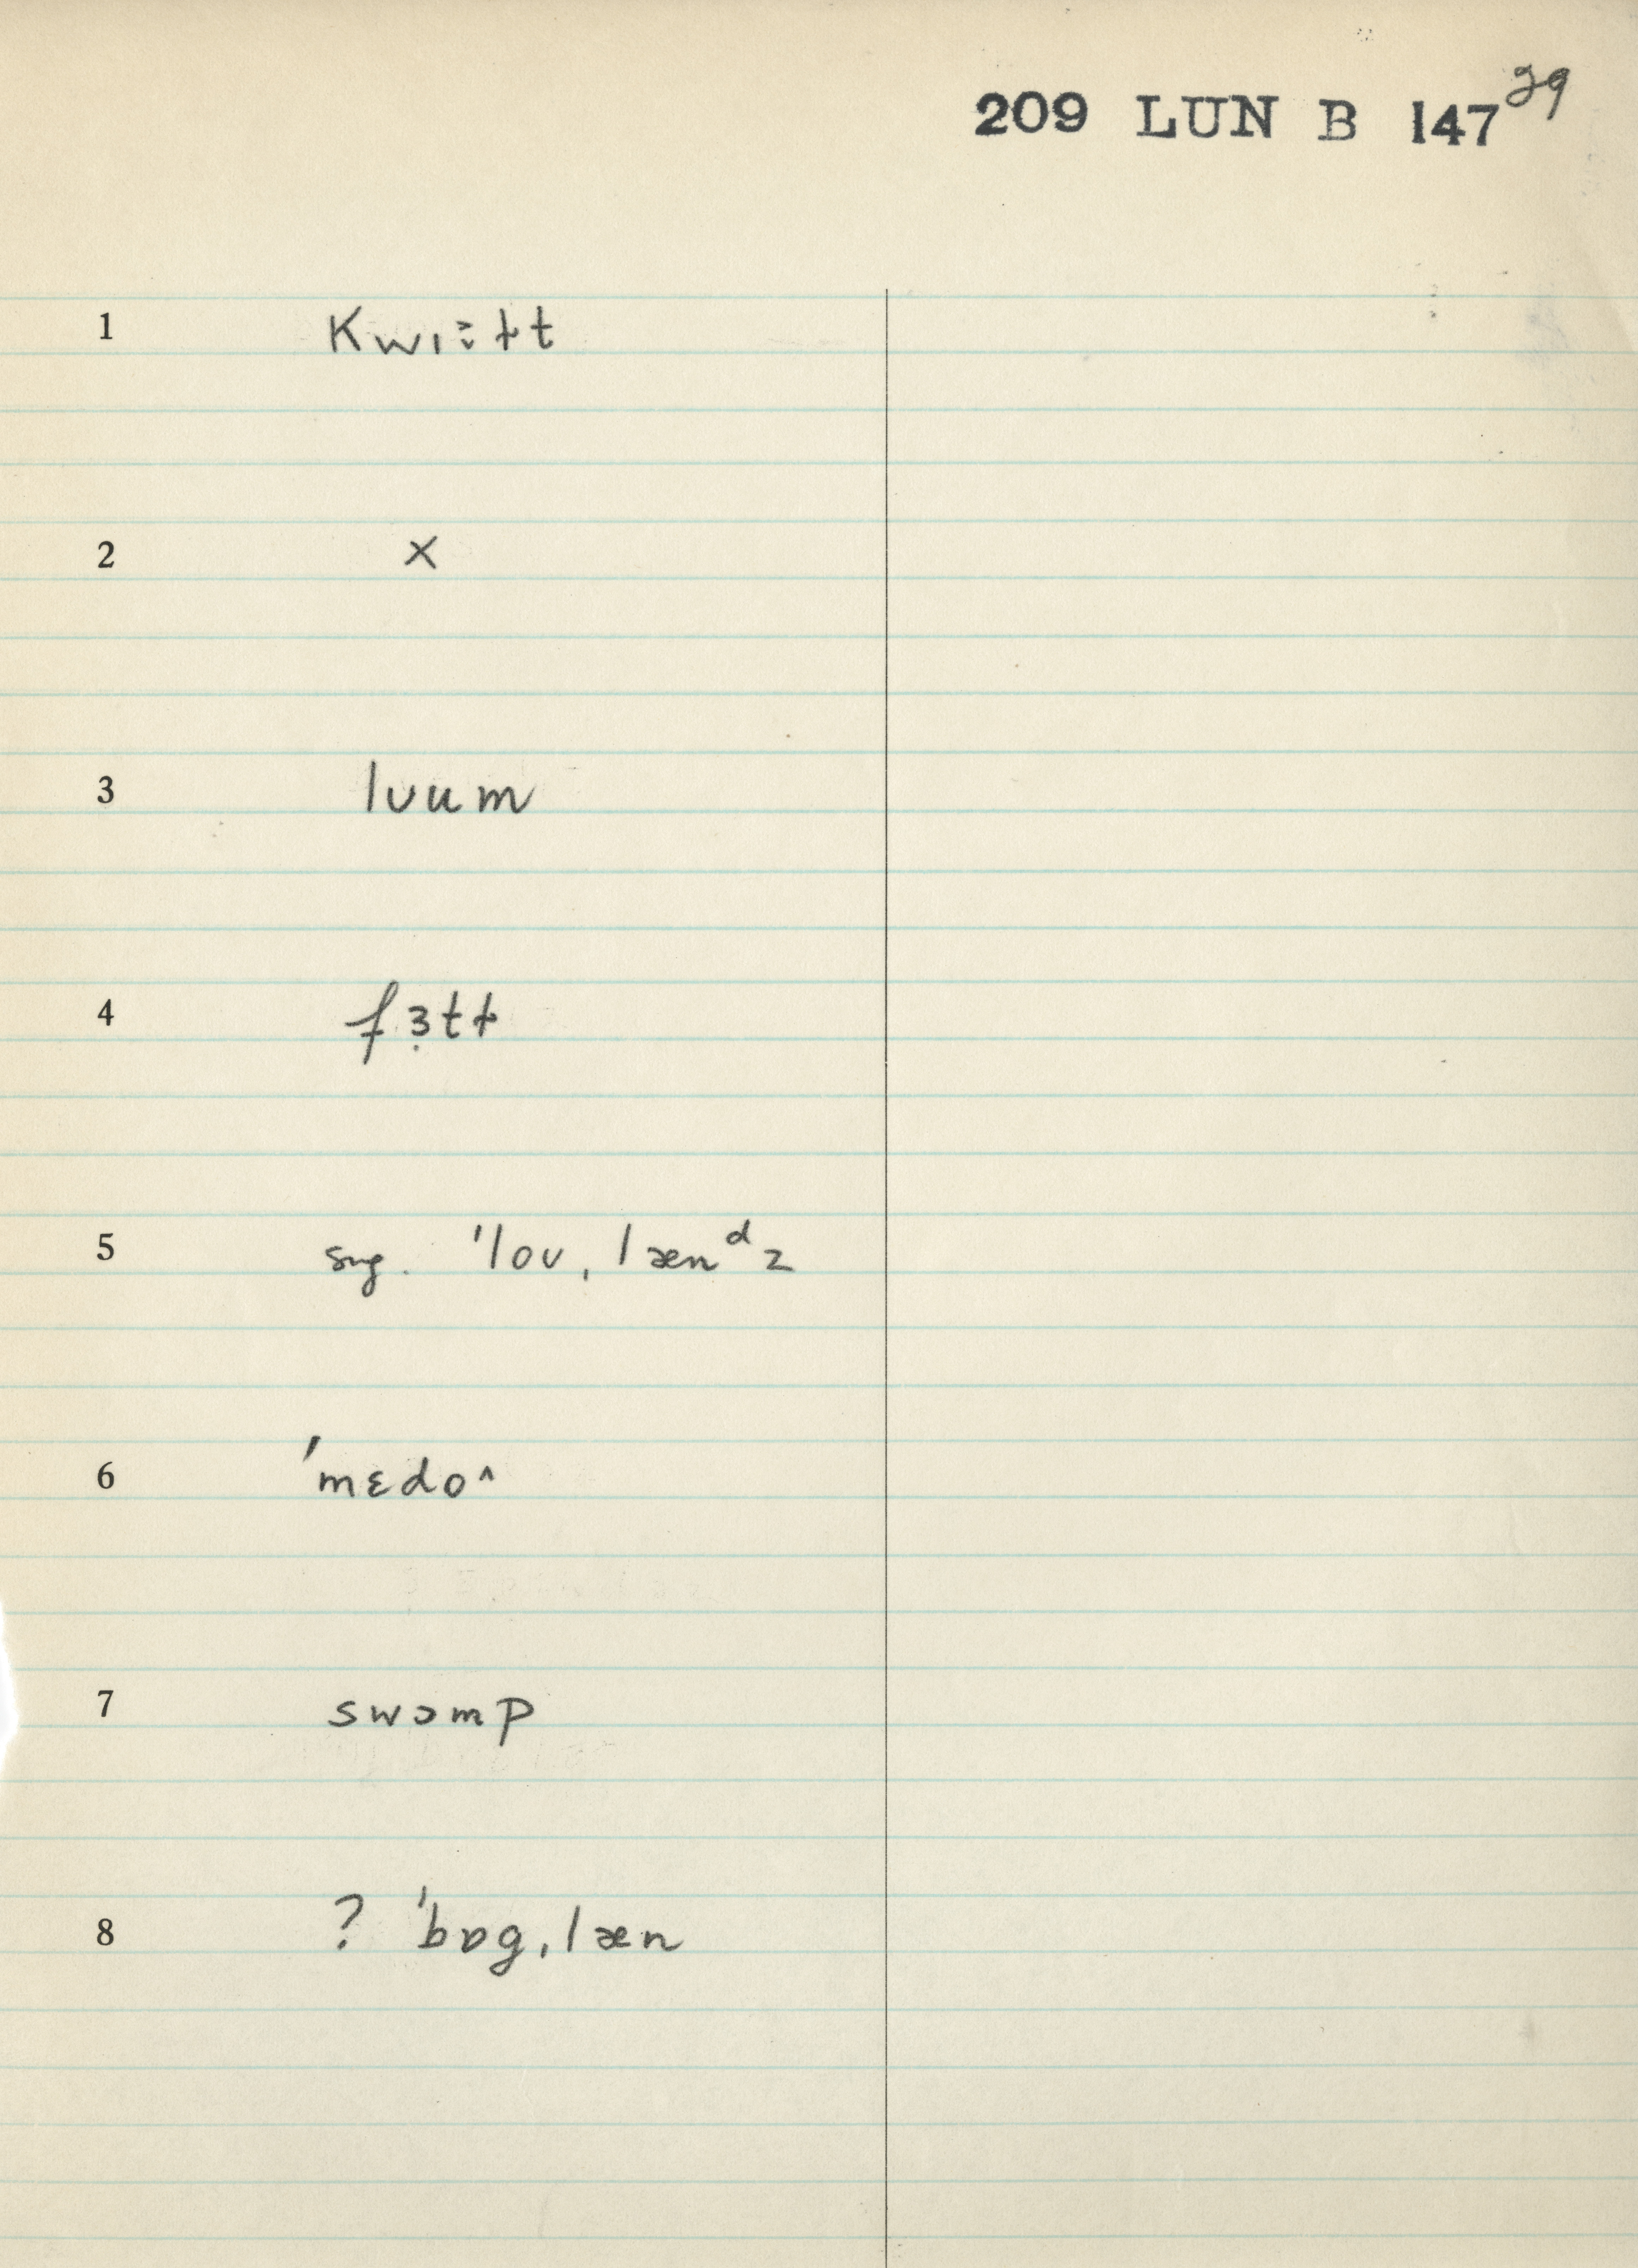 209 LUN B 147 29
1 kwɪɫt
2 x
3 lʊum
4 fɜ̣tɫ
5 sug. ˈloʊˌlænᵈz
6 ˈmɛdo^
7 swɔmp
8 ? ˈbɒgˌlæn